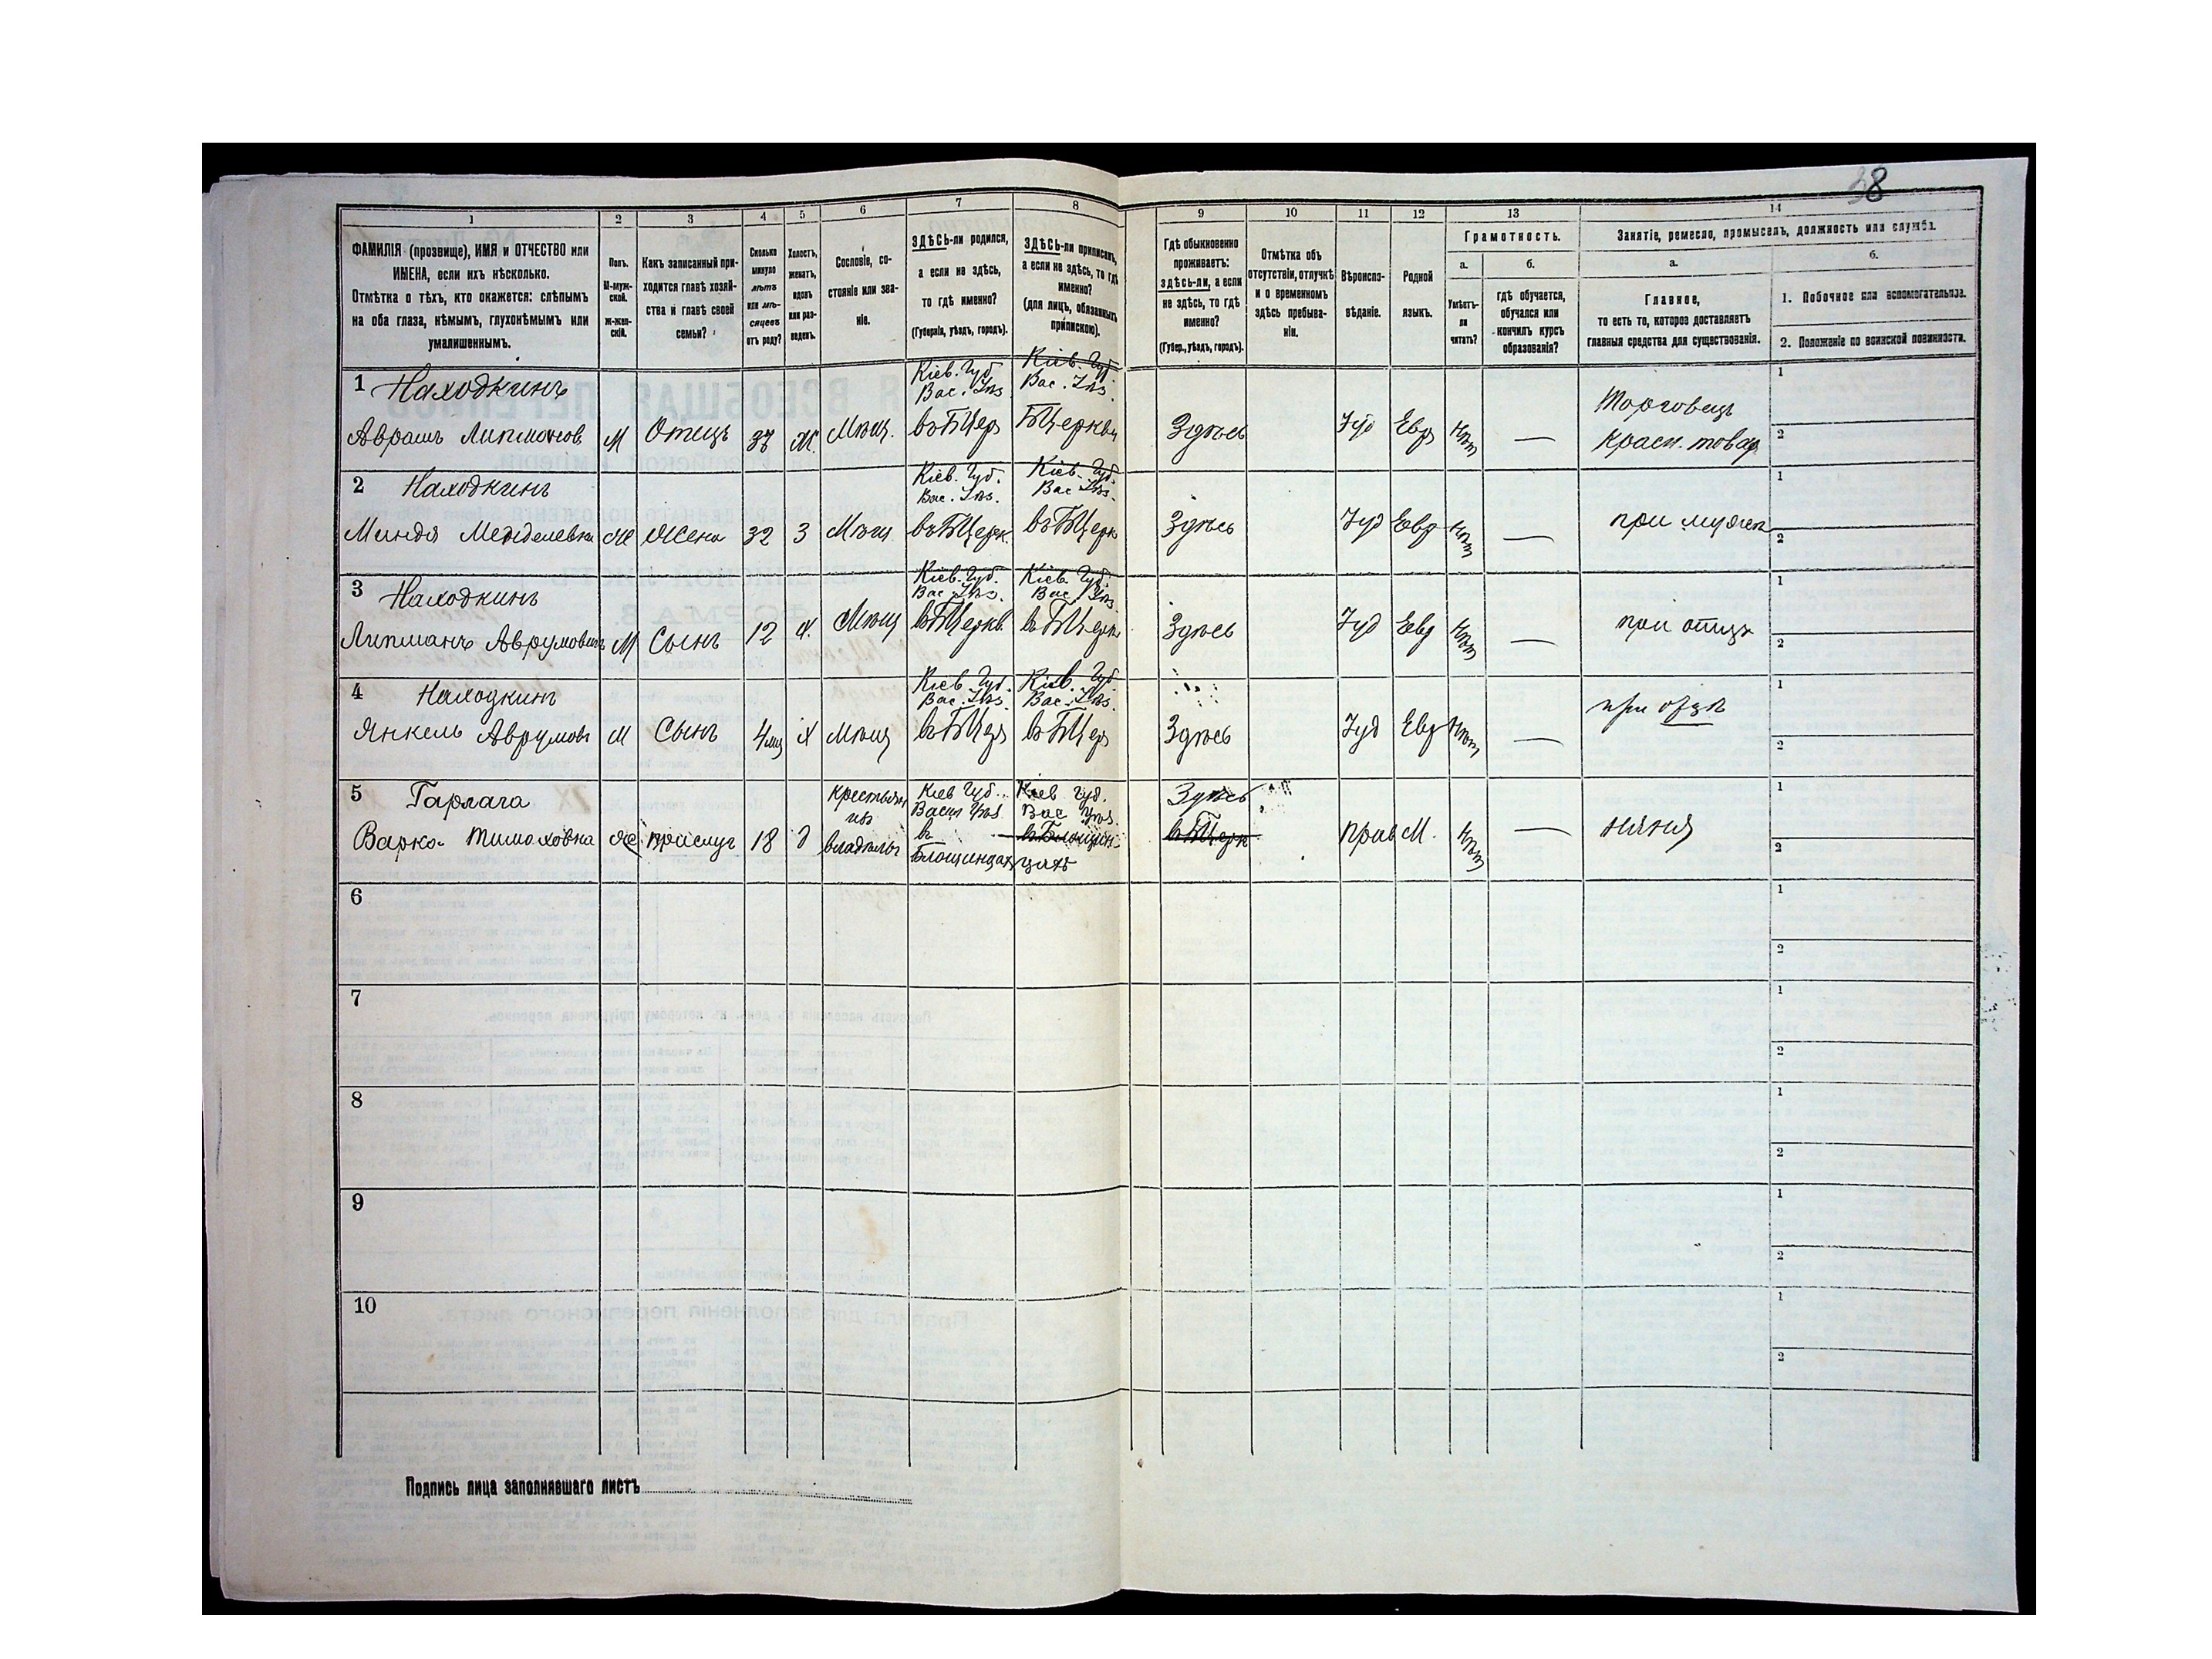 38
1
2
3
4
5
6
7
8
9
10
11
12
13
14
ФАМИЛІЯ (прозвище), ИМЯ и ОТЧЕСТВО или
ИМЕНА, если ихъ нѣсколько.
Отмѣтка о тѣхъ, кто окажется: слѣпымъ
на оба глаза, нѣмымъ, глухонѣмымъ или
умалишеннымъ.
Полъ.
М-муж-
ской.
Ж-жен-
скій.
Какъ записанный при-
ходится главѣ хозяй-
ства и главѣ своей
семьи?
Сколько
минуло
лѣтъ
или мѣ-
сяцевъ
отъ роду?
Холостъ,
женатъ,
вдовъ
или раз-
веденъ.
Сословіе, со-
стояніе или зва-
ніе.
ЗДѢСЬ-ли родился,
а если не здѣсь,
то гдѣ именно?
(Губернія, уѣздъ, городъ).
ЗДѢСЬ-ли приписанъ,
а если не здѣсь, то гдѣ
именно?
(для лицъ, обязанныхъ
припискою).
Гдѣ обыкновенно
проживаетъ:
здѣсь-ли, а если
не здѣсь, то гдѣ
именно?
(Губер., уѣздъ, городъ).
Отмѣтка объ
отсутствіи, отлучкѣ
и о временномъ
здѣсь пребыва-
ніи.
Вѣроиспо-
вѣданіе.
Родной
языкъ.
Грамотность.
а.
Умѣетъ-
ли
читать?
б.
гдѣ обучается,
обучался или
кончилъ курсъ
образованія?
Занятіе, ремесло, промыселъ, должность или служба.
а.
Главное,
то есть то, которое доставляетъ
главныя средства для существованія.
б.
1. Побочное или вспомогательное.
2. Положеніе по воинской повинности.
1 Находкинъ
Аврамъ Липманов М Отецъ 37 Ж. Мѣщ.
Кіев. Губ.
Вас. Уѣз.
въ БЦер
Кіев. Губ.
Вас. Уѣз.
БЦеркви
Здѣсь Іуд Евр Нѣт —
Торговецъ
Красн. товар
1
2
2 Находкинъ
Миндя Менделевна Ж Жена 32 З Мѣщ
Кіев. Губ.
Вас. Уѣз.
въ БЦерк.
Кіев. Губ.
Вас Уѣз.
въ БЦерк
Здѣсь Іуд Евр Нѣт —
при мужѣ
1
2
3 Находкинъ
Липманъ Аврумовичъ М Сынъ 12 Х. Мѣщ
Кіев. Губ.
Вас Уѣз.
въ БЦеркв
Кіев. Губ.
Вас. Уѣз.
въ БЦерк
Здѣсь Іуд Евр Нѣт —
при отцѣ
1
2
4 Находкинъ
Янкель Аврумовъ М Сынъ 4 мц Х Мѣщ
Кіев Губ.
Вас. Уѣз.
въ БЦер
Кіев. Губ.
Вас. Уѣз.
въ БЦер
Здѣсь Іуд Евр Нѣт —
при отцѣ
1
2
5 Гарлача
Варка Тимоховна Ж прислуг 18 д
крестьян
из
владѣльч
Кіев Губ.
Васил Уѣз.
в
Блощинцах
Кіев Губ.
Вас Уѣз.
въ Блощин
цахъ
Здѣсь
въ БЦерк
прав М. Нѣт —
няня
1
2
6
1
2
7
1
2
8
1
2
9
1
2
10
1
2
Подпись лица заполнявшаго листъ